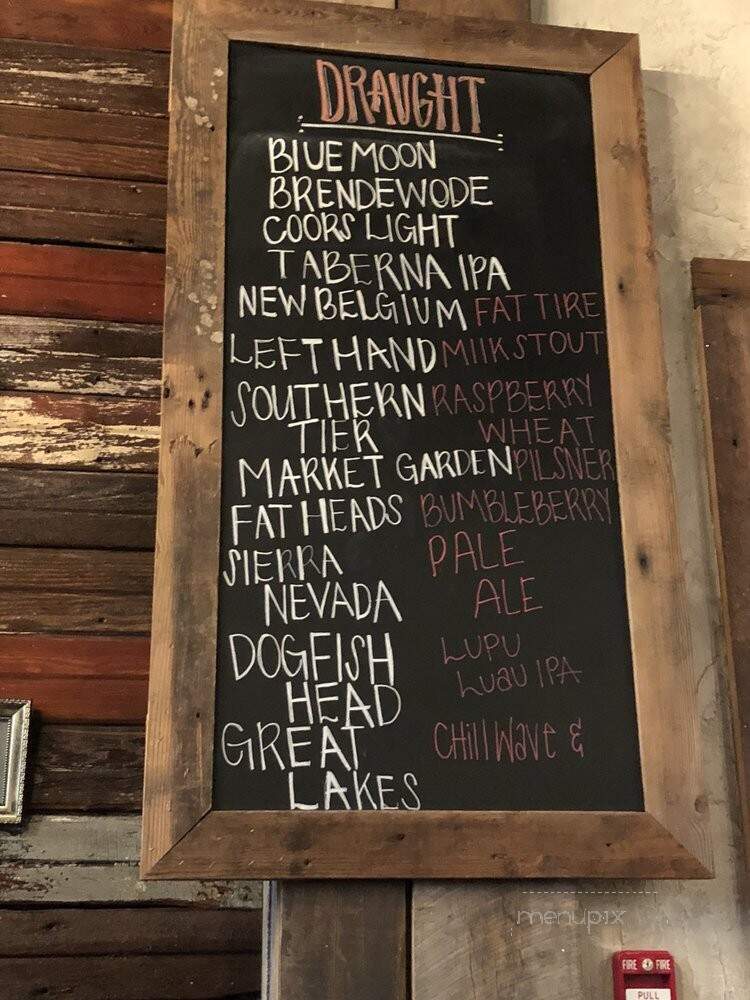 DRAUGHT
BLUE MOON
BRENDEWODE
COORS LIGHT
TABERNA IPA
NEW BELGIUM FAT TIRE
LEFT HAND MILK STOUT
SOUTHERN RASPBERRY
TIER WHEAT
MARKET GARDEN PILSNER
FAT HEADS BUMBLEBERRY
SIERRA PALE
NEVADA ALE
DOGFISH LUPU
HEAD LUAU IPA
GREAT CHILLWAVE &
LAKES
menupix
FIRE FIRE
PULL